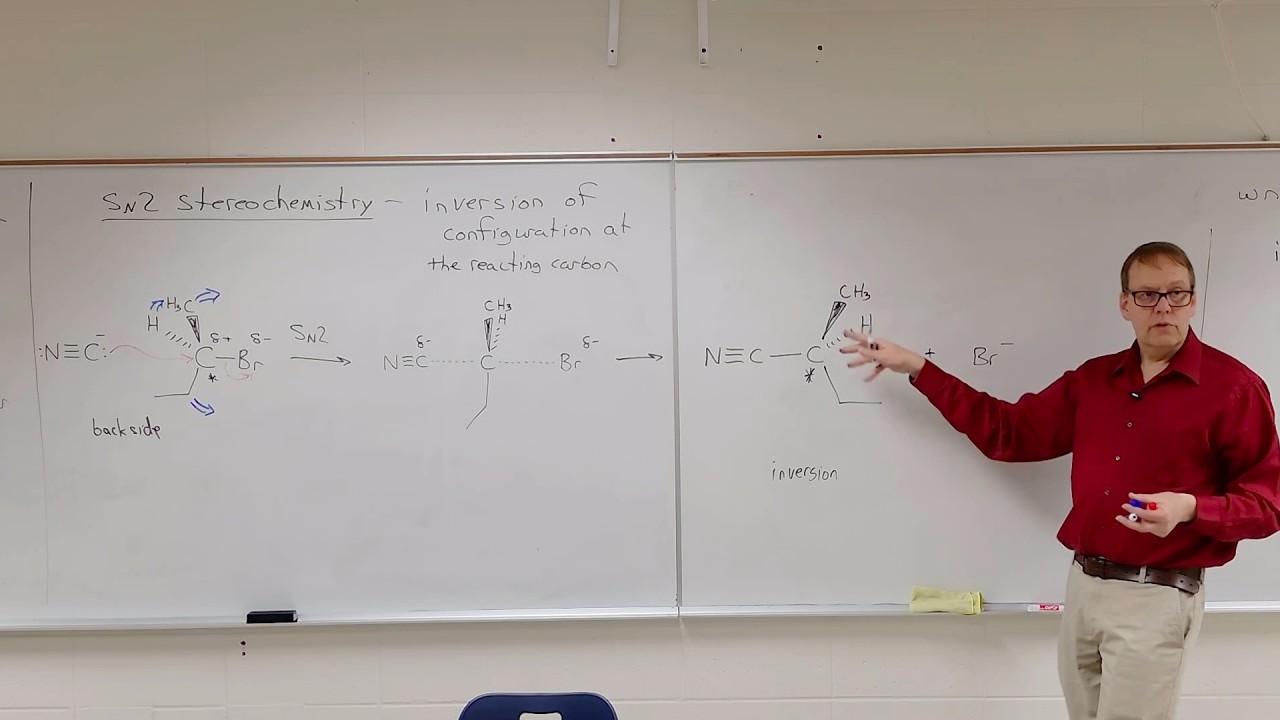 SN2 stereochemistry – inversion of
configuration at
the reacting carbon
H₃C
H
:N≡C:⁻
δ+ δ-
C–Br
*
SN2
backside
CH₃
H
δ- δ-
N≡C C Br
CH₃
H
N≡C–C + Br⁻
*
inversion
wn